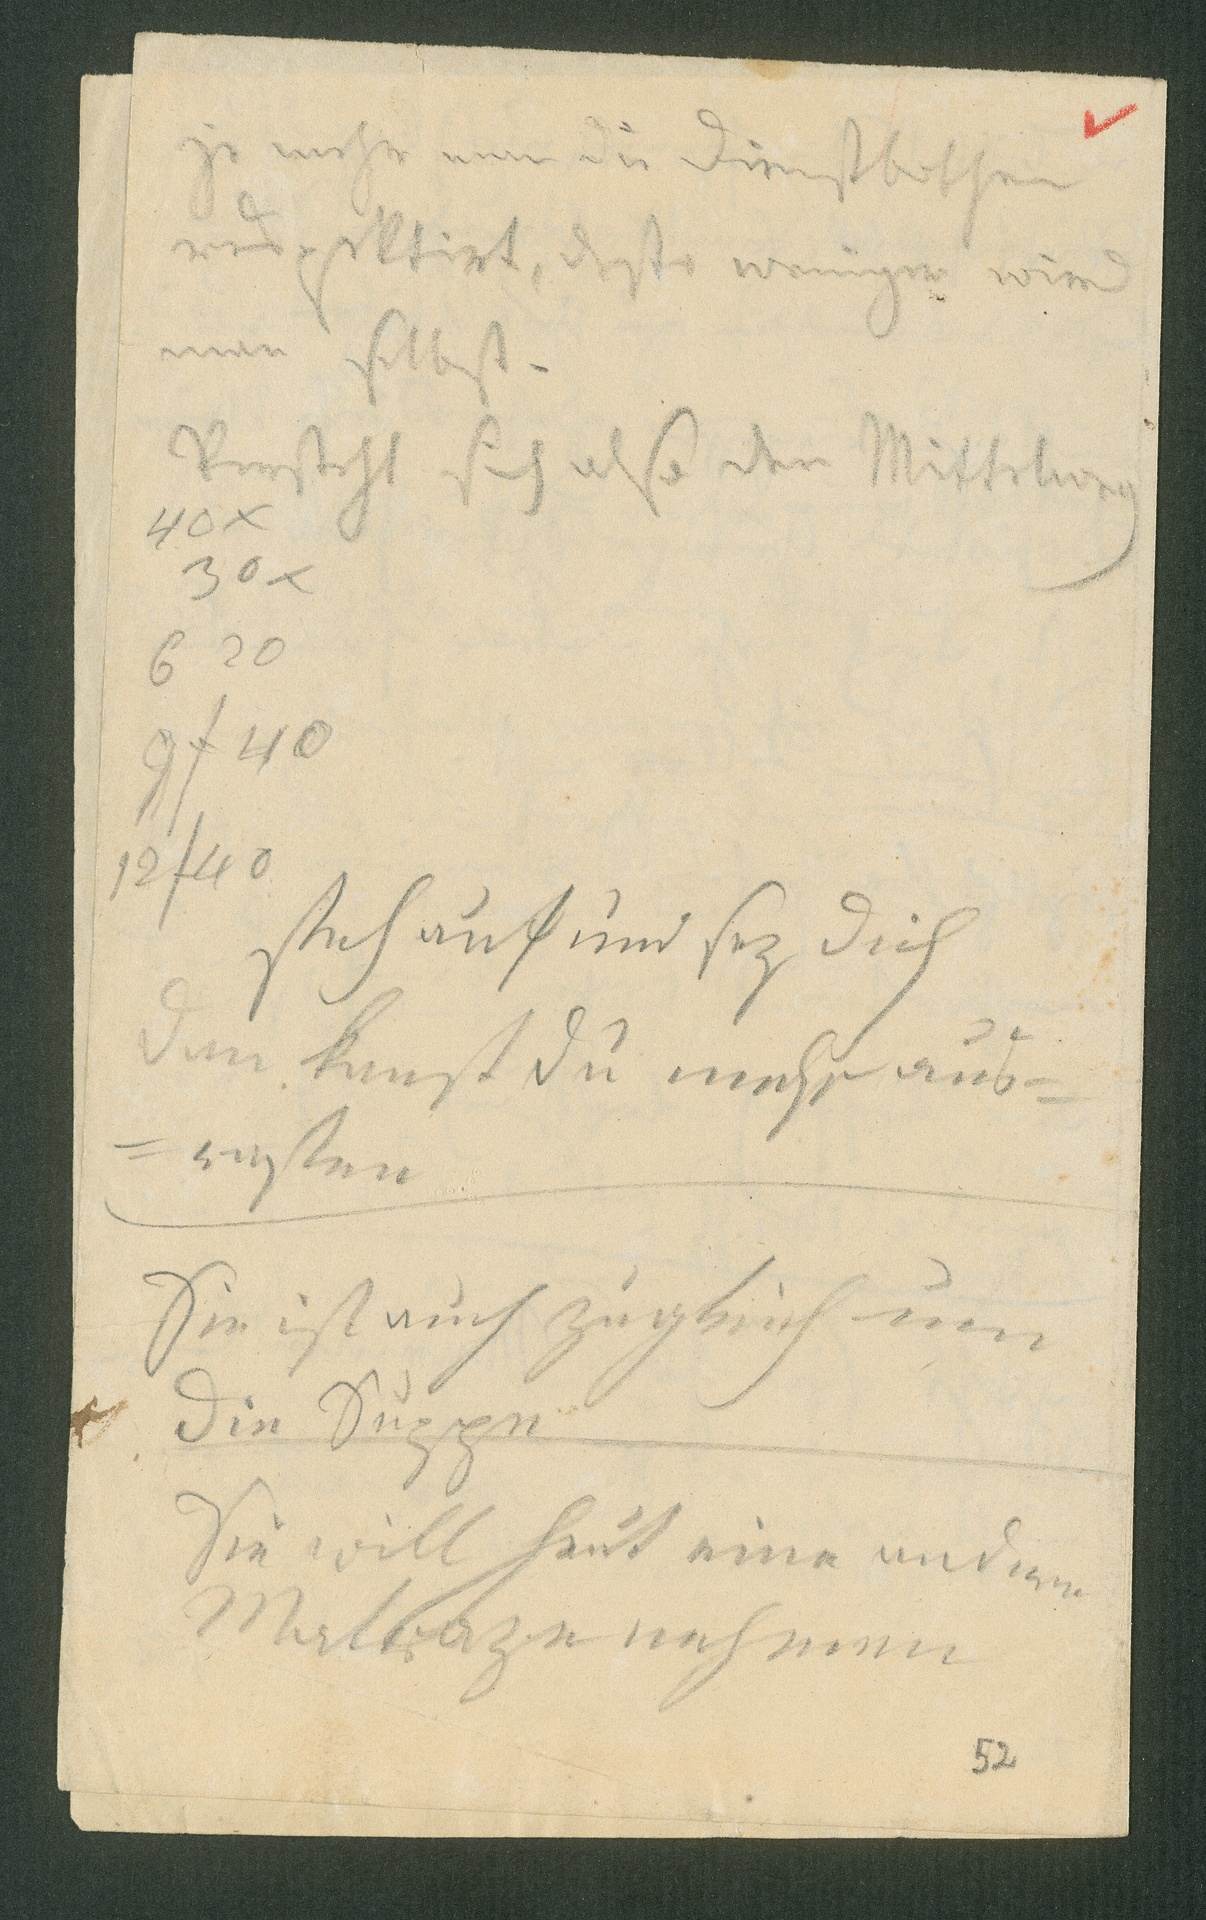 je mehr man die Dienstbothen
respektirt, desto weniger wird
man selbst.
Versteht sich also den Mittelweg
40x
30x
6 20
9f 40
12f40
steh auf und sez dich
dan kanst du mehr aus=
=rasten
Sie ist auch zugleich um
die Suppe
Sie will heut eine andere
Matraze nehmen
52